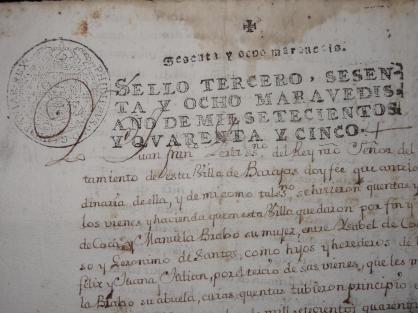 Sesenta y ocho maravedis.
SELLO TERCERO, SESEN
TA Y OCHO MARAVEDIS
AÑO DE MIL SETECIENTOS
Y QVARENTA Y CINCO.
Juan Fran del Rey nrô Señor del
tamiento de esta Villa de Barajas doy fee que ante
dinaria de ella, y de mi como tal es.no se hizieron quentas
los vienes y hazienda que en esta Villa quedaron por fin y
de Manuela Brabo su mujer, entre Isabel de
so y Geronimo de Santos, como hijos y herederos de
felix y Juana Julian, por el tercio de sus vienes, que les m
la Brabo su abuela, cuias quentas tubieron principio
de mil setecientos quaren